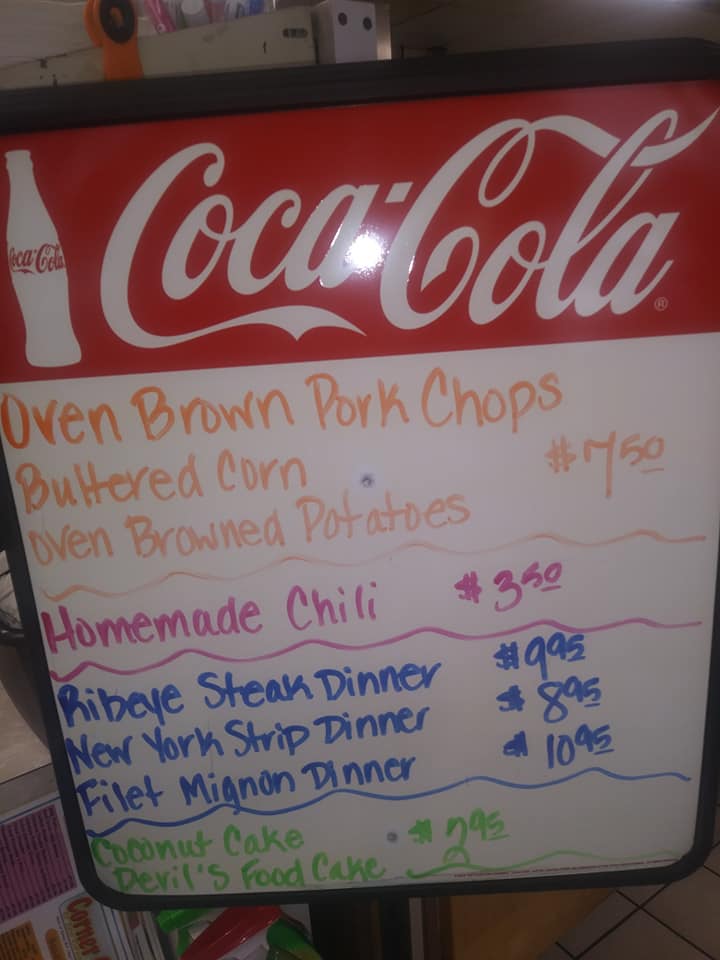 Coca-Cola
Coca-Cola®
Oven Brown Pork Chops
Buttered Corn $7.50
Oven Browned Potatoes
Homemade Chili $3.50
Ribeye Steak Dinner $9.95
New York Strip Dinner $8.95
Filet Mignon Dinner $10.95
Coconut Cake $2.95
Devil's Food Cake
Corner